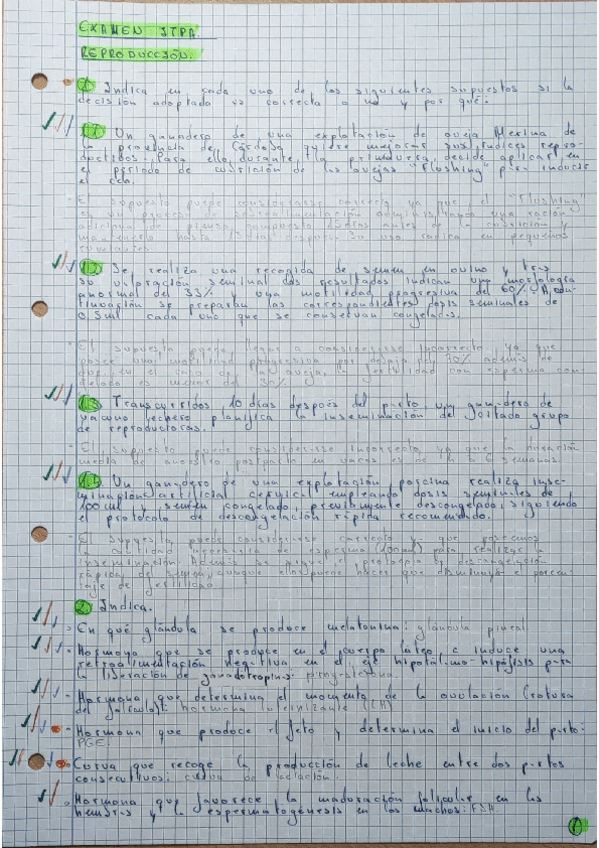 EXAMEN ITPA.
REPRODUCCIÓN.
1 Indica en cada uno de los siguientes supuestos si la
decisión adoptada es correcta o no y por qué:
1.1 Un ganadero de una explotación de oveja Merina de
la provincia de Córdoba quiere mejorar sus índices repro-
ductivos. Para ello, durante la primavera, decide aplicar en
el periodo de cubrición de las ovejas "flushing" para inducir
el celo.
- El supuesto puede considerarse correcto ya que el "flushing"
es un proceso de sobrealimentación administrando una ración
adicional de pienso compuesto días antes de la cubrición y
después. Su uso radica en pequeños
rumiantes.
1.2 Se realiza una recogida de semen en ovino y tras
su valoración seminal los resultados indican una morfología
anormal del 33% y una motilidad progresiva del 60%. A con-
tinuación se preparan las correspondientes dosis seminales de
0,5ml cada uno que se conservan congelados.
- El supuesto puede llegar a considerarse incorrecto ya que
posee una motilidad progresiva por debajo del 70% además de
que en el caso de la oveja, la fertilidad con esperma con-
gelado es menor del 30%.
1.3 Transcurridos 10 días después del parto, un ganadero de
vacuno lechero planifica la inseminación del citado grupo
de reproductoras.
- El supuesto puede considerarse incorrecto ya que la duración
media de anestro postparto en vacas es de 4 a 6 semanas.
1.4 Un ganadero de una explotación porcina realiza inse-
minación artificial cervical empleando dosis seminales de
100ml y semen congelado, previamente descongelado, siguiendo
el protocolo de descongelación rápida recomendado.
- El supuesto puede considerarse correcto ya que poseemos
la cantidad necesaria de esperma (100ml) para realizar la
inseminación. Además se sigue el protocolo de descongelación
rápida del semen, aunque ello puede hacer que disminuya el porcen-
taje de fertilidad.
2 Indica.
- En qué glándula se produce melatonina: glándula pineal
- Hormona que se produce en el cuerpo lúteo e induce una
retroalimentación negativa en el eje hipotálamo-hipófisis para
la liberación de gonadotropinas: progesterona.
- Hormona que determina el momento de la ovulación (rotura
del folículo): hormona luteinizante (LH)
- Hormona que produce el feto y determina el inicio del parto:
PGE.
- Curva que recoge la producción de leche entre dos partos
consecutivos: curva de lactación.
- Hormona que favorece la maduración folicular en las
hembras y la espermatogénesis en los machos: FSH.
1